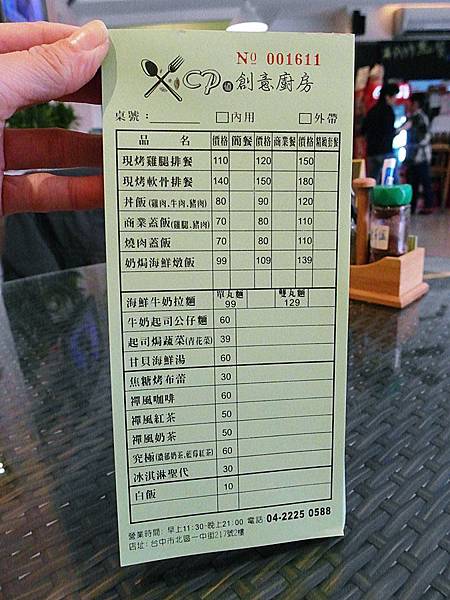 No 001611
CP 創意廚房
桌號：______ □內用 □外帶
品 名 價格 簡餐 價格 商業餐 價格 精緻套餐
現烤雞腿排餐 110 120 150
現烤軟骨排餐 140 150 180
丼飯(雞肉、牛肉、豬肉) 80 90 120
商業蓋飯(雞腿、豬肉) 70 80 110
燒肉蓋飯 70 80 110
奶焗海鮮燉飯 99 109 139
海鮮牛奶拉麵 單丸麵 99 雙丸麵 129
牛奶起司公仔麵 60
起司焗蔬菜(青花菜) 39
甘貝海鮮湯 60
焦糖烤布蕾 30
禪風咖啡 60
禪風紅茶 50
禪風奶茶 50
究極(濃郁奶茶、藍莓紅茶) 60
冰淇淋聖代 30
白飯 10
營業時間: 早上11:30-晚上21:00 電話:04-2225 0588
店址: 台中市北區一中街217號2樓